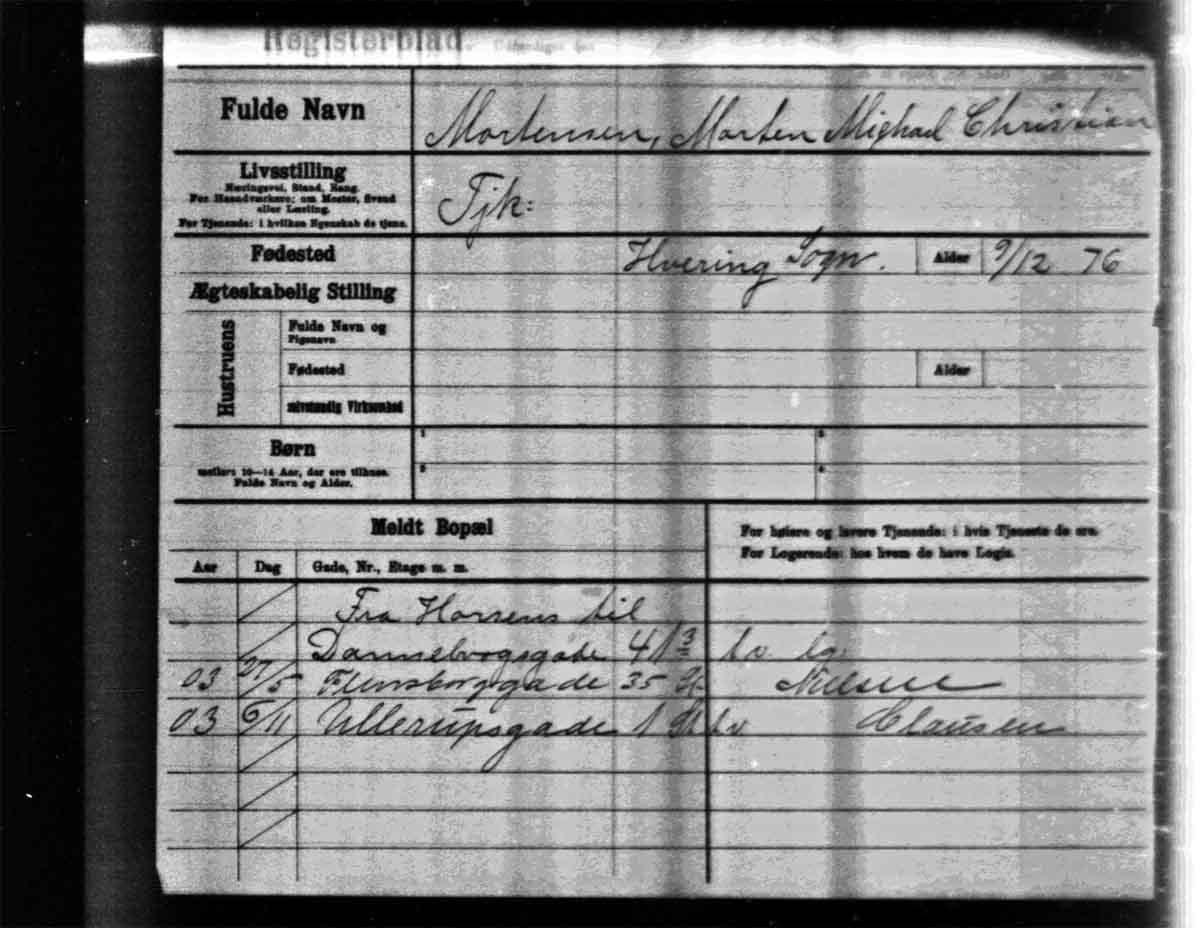 Registerblad.
Fulde Navn Mortensen, Morten Mighael Christian
Livsstilling
Næringsvei, Stand, Rang.
For Haandværkere; om Mester, Svend
eller Lærling.
For Tjenende: i hvilken Egenskab de tjene.
Tjk:
Fødested Hvering Sogn. Alder 9/12 76
Ægteskabelig Stilling
Hustruens
Fulde Navn og
Pigenavn
Fødested Alder
selvstændig Virksomhed
Børn
mellem 10—14 Aar, der ere tilhuse.
Fulde Navn og Alder.
1 2
3 4
Meldt Bopæl
For høiere og lavere Tjenende: i hvis Tjeneste de ere.
For Logerende: hos hvem de have Logis.
Aar Dag Gade, Nr., Etage m. m.
Fra Horsens til
Dannebrogsgade 41 3 tv. lg.
03 27/5 Flensborggade 35 St. Nielsen
03 6/11 Ullerupsgade 1 St tv Clausen